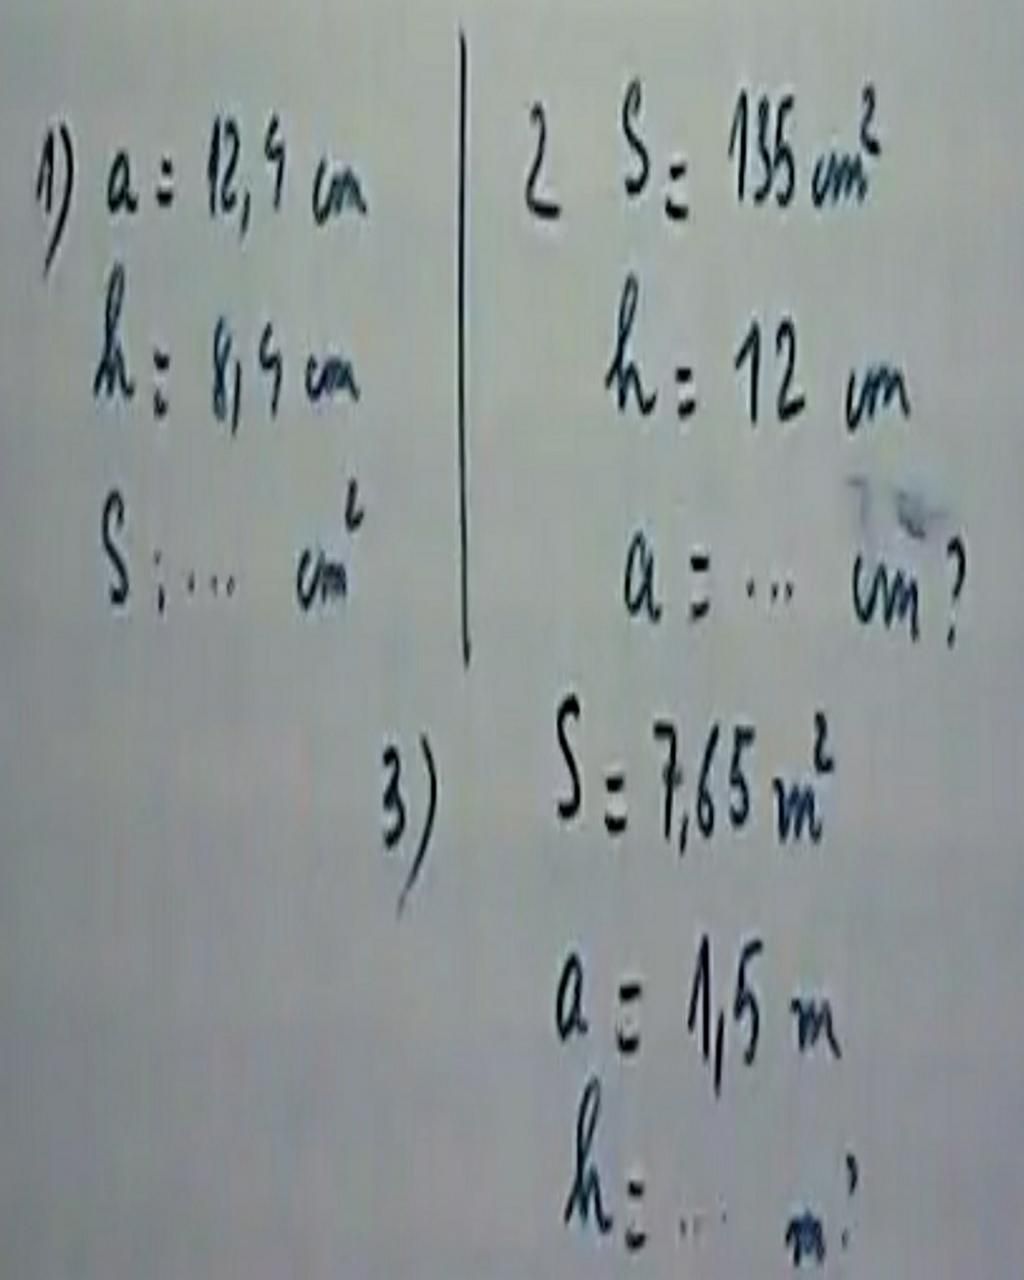 1) a = 12,4 cm
h = 8,4 cm
S : ... cm²
2 S = 135 cm²
h = 12 cm
a = ... cm ?
3) S = 7,65 m²
a = 1,5 m
h = ... m ?